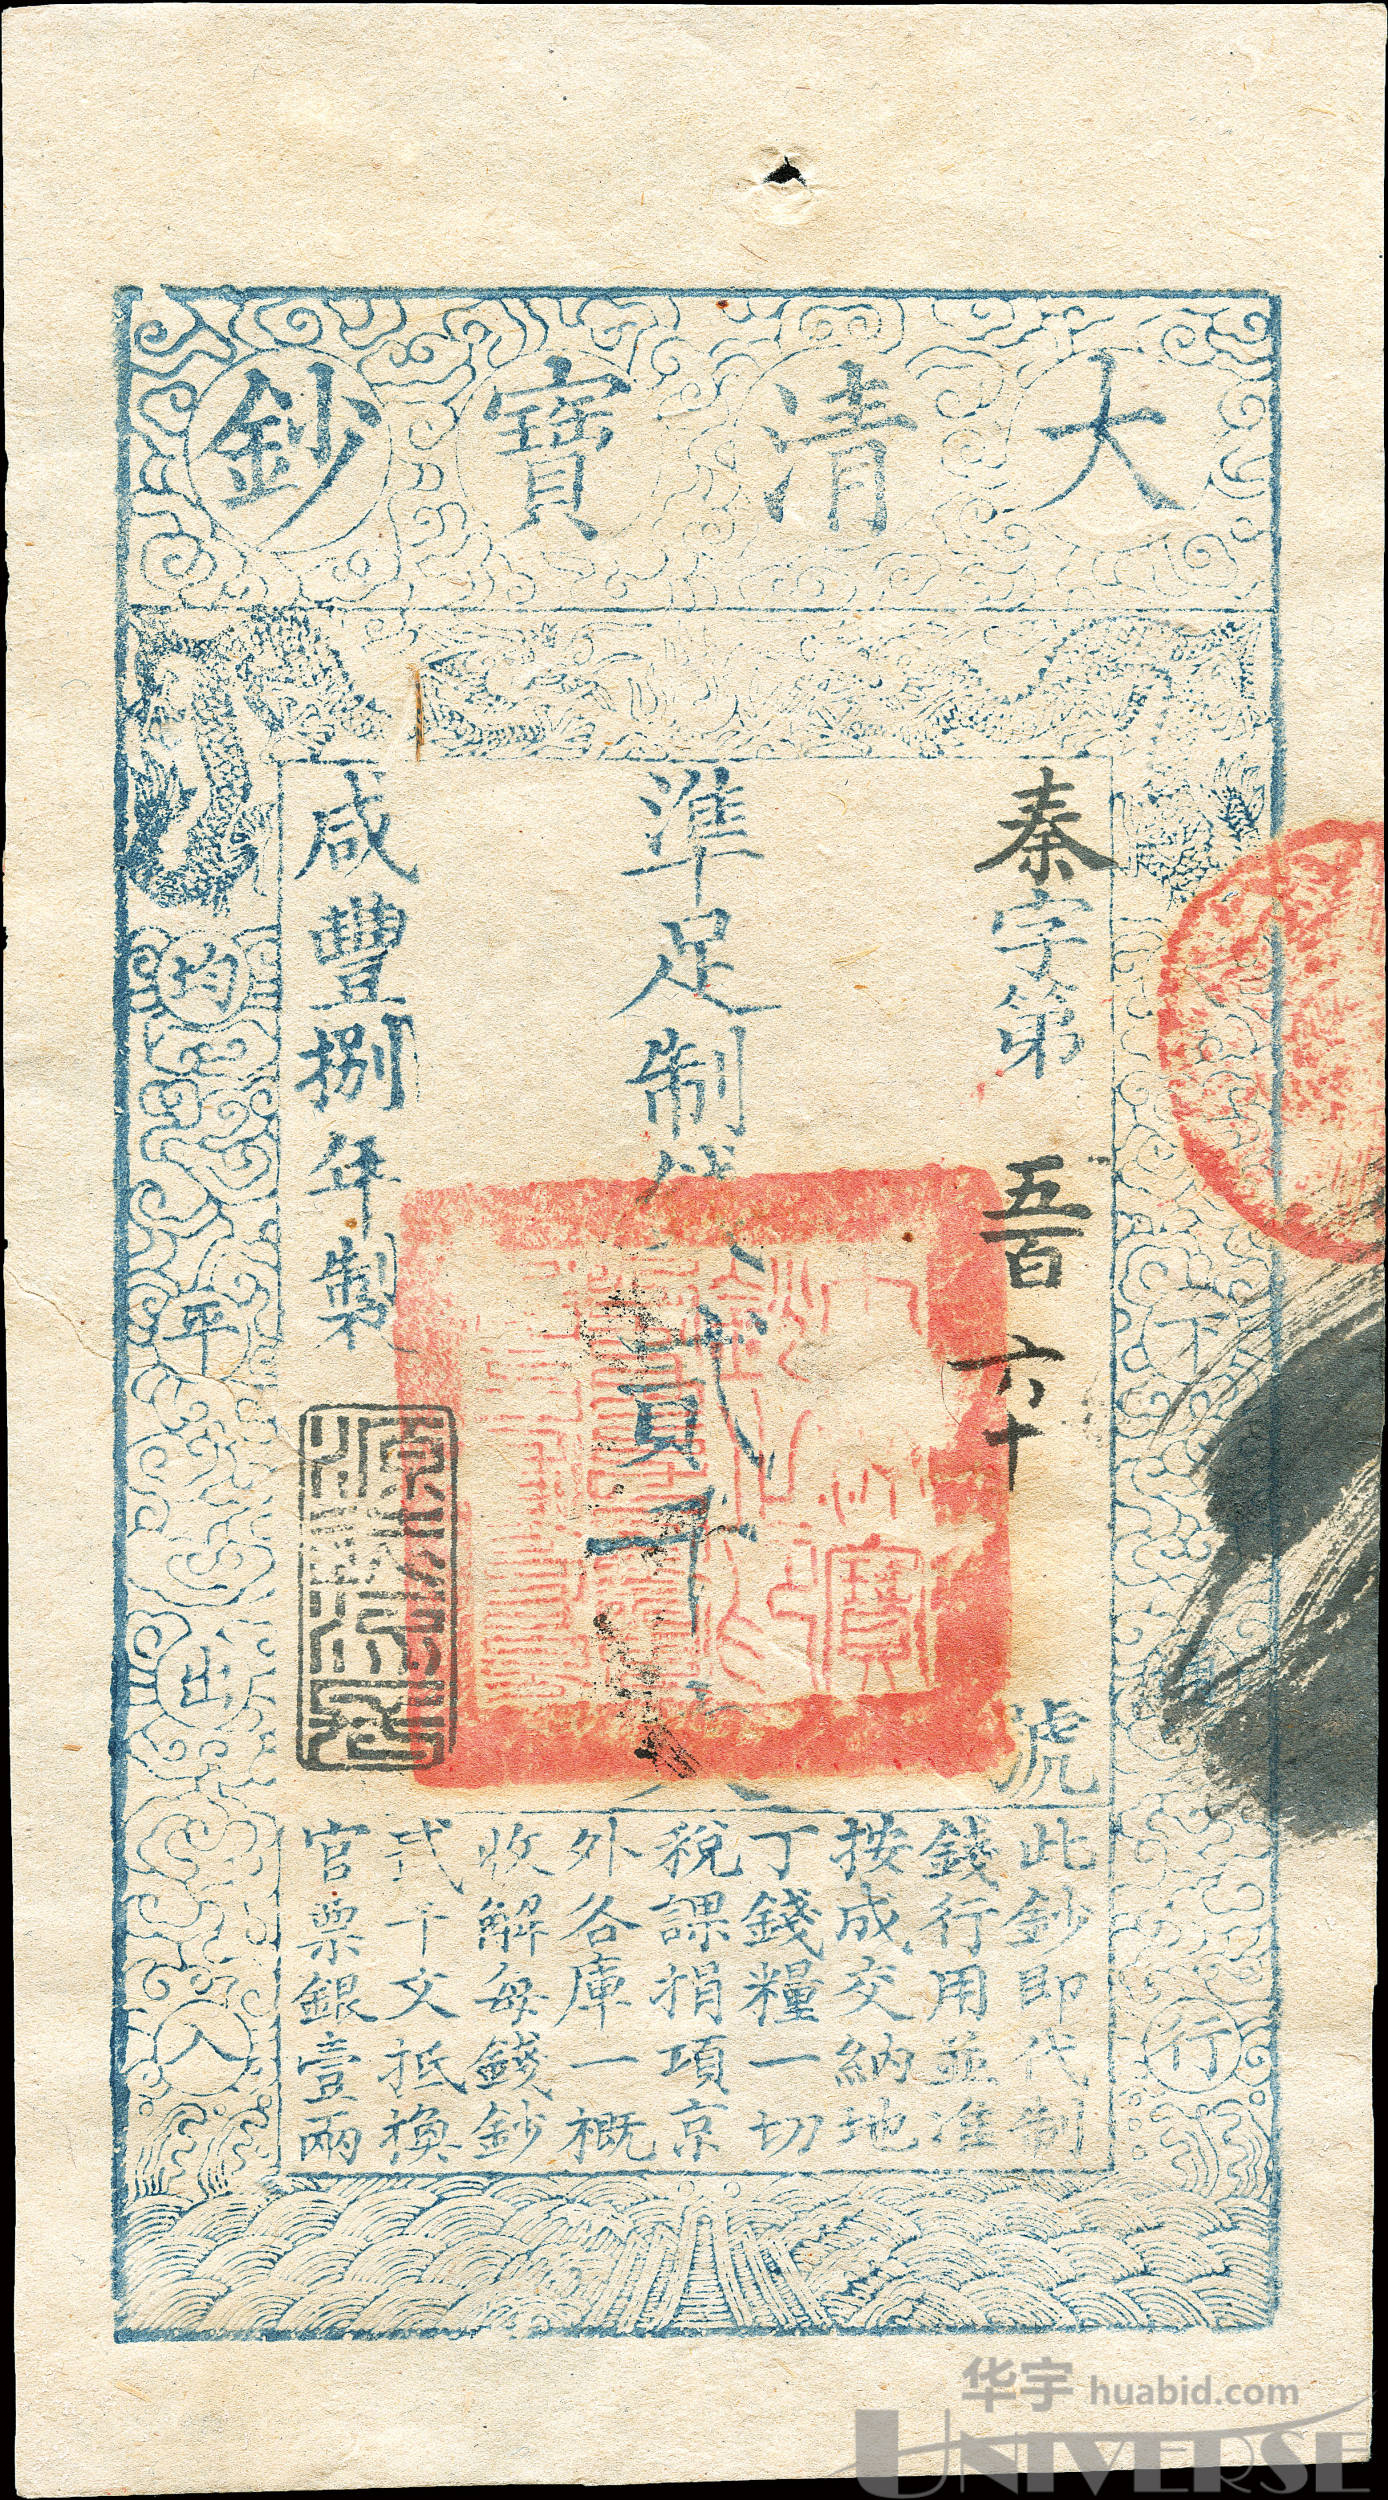 大清寶鈔
秦字第五百六十號
準足制錢貳千文
咸豐捌年製
此鈔即代制
錢行用並准
按成交納地
丁錢糧一切
稅課捐項京
外各庫一概
收解每錢鈔
貳千文抵換
官票銀壹兩
下
行
均
平
出
入
华宇 huabid.com
UNIVERSE